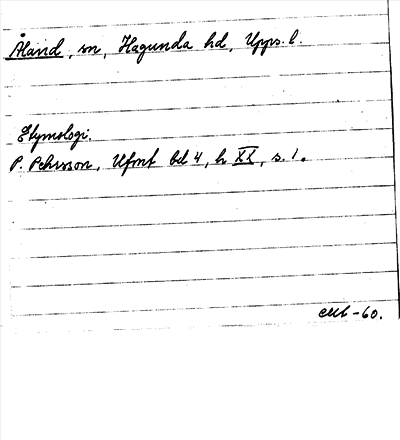 Åland, sn, Hagunda hd, Upps. l.
Etymologi.
P. Pehrsson, Ufmt bd 4, h XX, s. 1.
CMb -60.